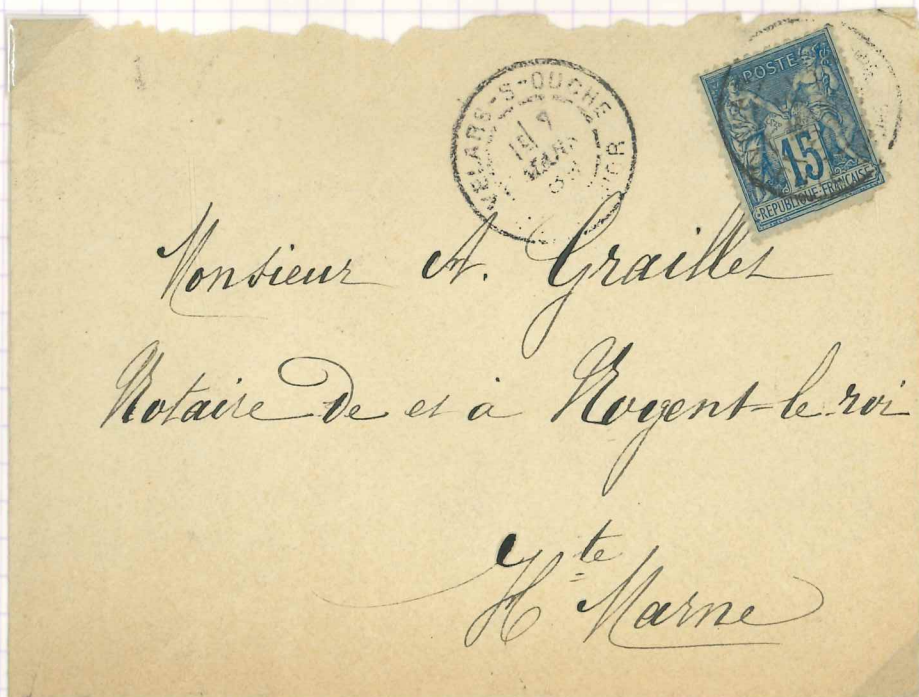 VELARS-S-OUCHE
MARS
POSTE
15
REPUBLIQUE FRANÇAISE
Monsieur A. Graillet
Notaire de et à Nogent-le-roi
Hte Marne